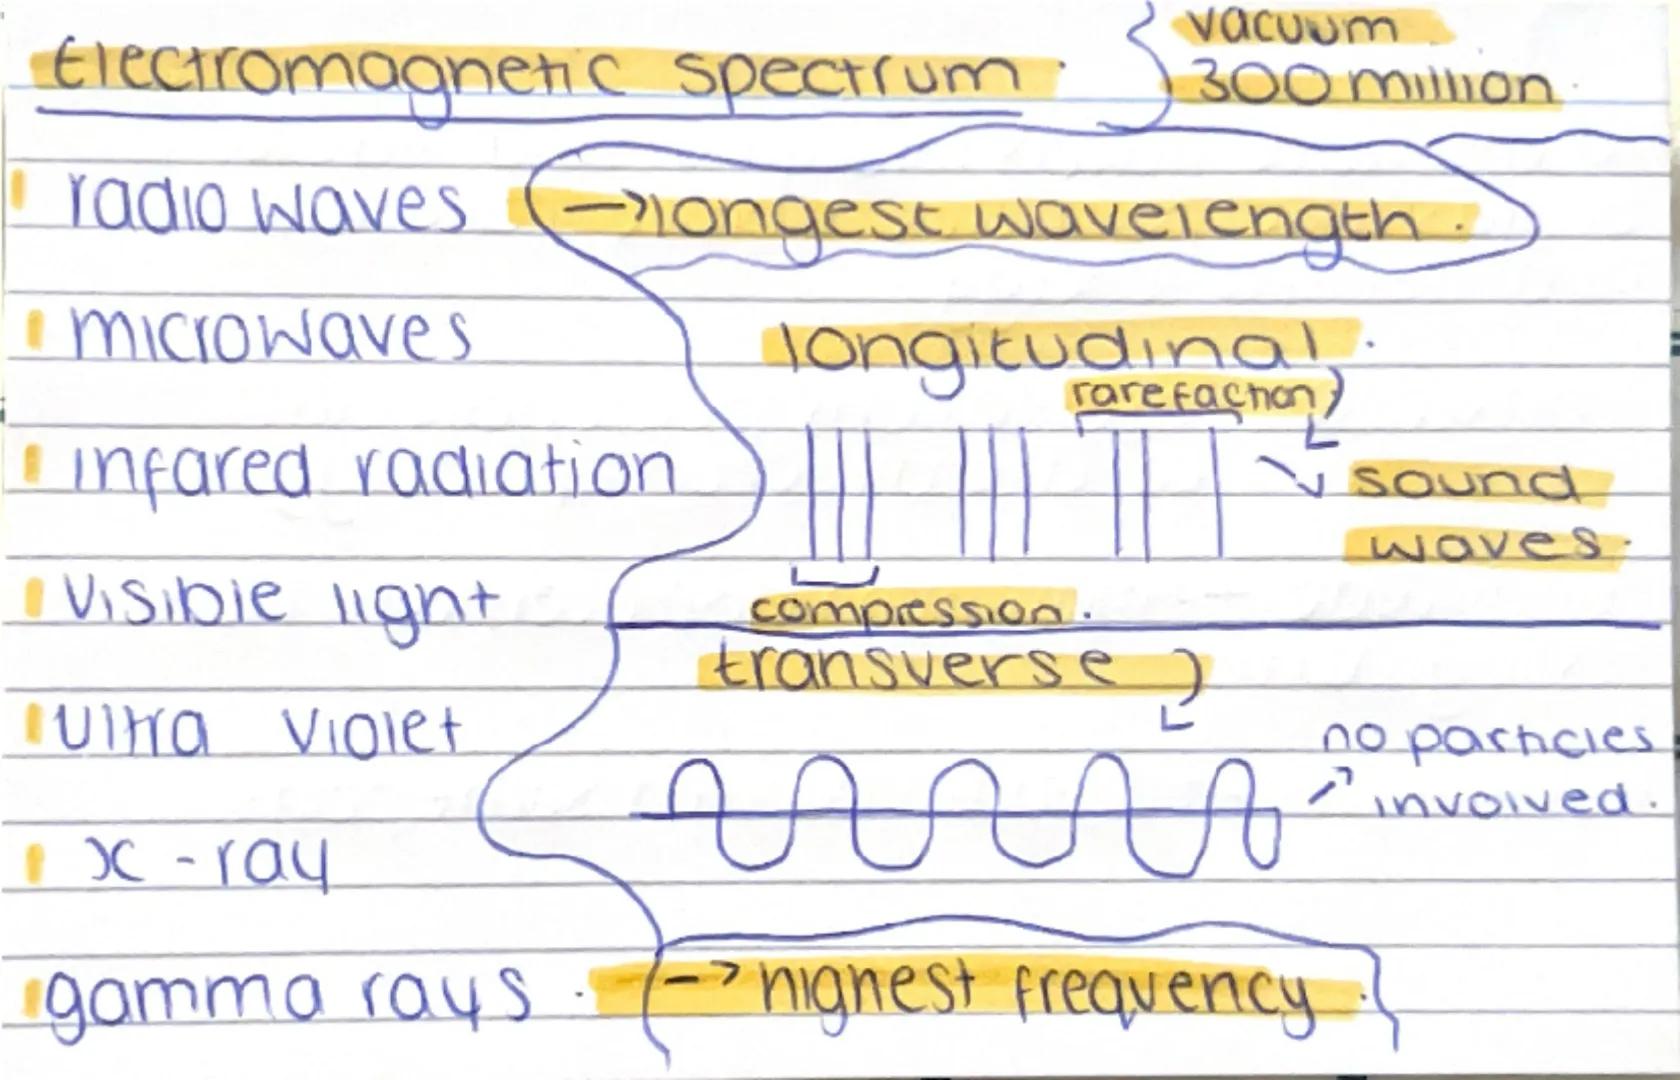 Electromagnetic spectrum.
vacuum
300 million.
radio waves
→ longest wavelength.
microwaves
longitudinal.
rarefaction
infared radiation
sound
waves.
visible light
compression.
transverse
ultra violet
no particles
involved.
x-ray
gamma rays.
→ highest frequency.